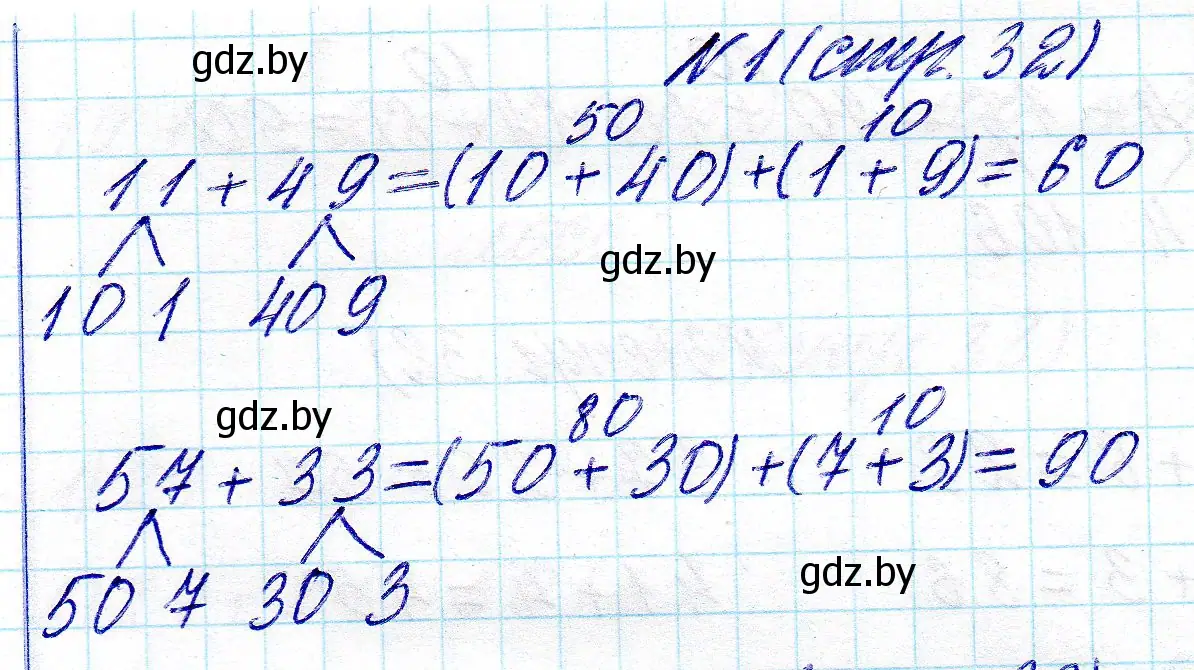 gdz.by
N1 (стр. 32)
50 10
11 + 49 = (10 + 40) + (1 + 9) = 60
gdz.by
10 1 40 9
gdz.by
80 10
57 + 33 = (50 + 30) + (7 + 3) = 90
gdz.by
50 7 30 3